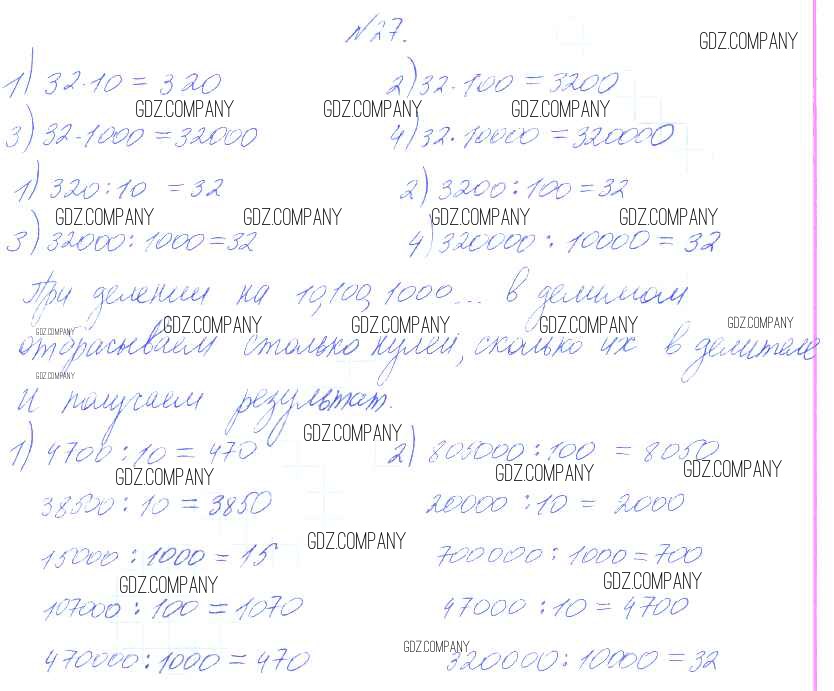 №27.
GDZ.COMPANY
1) 32·10 = 320 2) 32·100 = 3200
GDZ.COMPANY GDZ.COMPANY GDZ.COMPANY
3) 32·1000 = 32000 4) 32·10000 = 320000
1) 320:10 = 32 2) 3200:100 = 32
GDZ.COMPANY GDZ.COMPANY GDZ.COMPANY GDZ.COMPANY
3) 32000:1000=32 4) 320000:10000 = 32
При делении на 10,100,1000... в делимом
GDZ.COMPANY GDZ.COMPANY GDZ.COMPANY GDZ.COMPANY GDZ.COMPANY
отбрасываем столько нулей, сколько их в делителе
GDZ.COMPANY
и получаем результат.
GDZ.COMPANY
1) 4700:10 = 470 2) 805000:100 = 8050
GDZ.COMPANY GDZ.COMPANY GDZ.COMPANY
38500:10 = 3850 20000:10 = 2000
GDZ.COMPANY
15000:1000 = 15 700000:1000=700
GDZ.COMPANY GDZ.COMPANY
107000:100 = 1070 47000:10 = 4700
GDZ.COMPANY
470000:1000 = 470 320000:10000 = 32